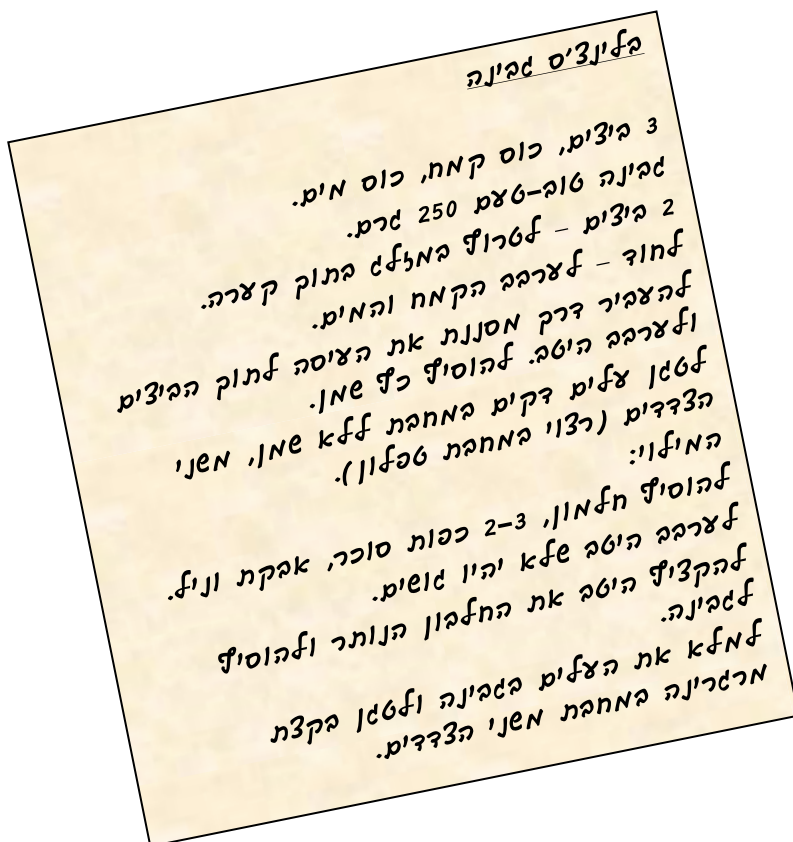 בלינצ'ס גבינה
3 ביצים, כוס קמח, כוס מים.
גבינה טוב-טעם 250 גרם.
2 ביצים - לטרוף במזלג בתוך קערה.
לחוד - לערבב הקמח והמים.
להעביר דרך מסננת את העיסה לתוך הביצים
ולערבב היטב. להוסיף כף שמן.
לטגן עלים דקים במחבת ללא שמן, משני
הצדדים (רצוי במחבת טפלון).
המילוי:
להוסיף חלמון, 2-3 כפות סוכר, אבקת וניל.
לערבב היטב שלא יהיו גושים.
להקציף היטב את החלבון הנותר ולהוסיף
לגבינה.
למלא את העלים בגבינה ולטגן בקצת
מרגרינה במחבת משני הצדדים.